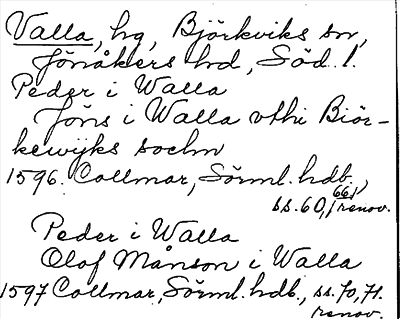 Valla, hg, Björkviks sn,
Jönåkers hd, Söd. l.
Peder i Walla
Jöns i Walla vthi Biör-
kewijks sochn
1596. Collmar, Sörml. hdb.,
ss. 60, 661, renov.
Peder i Walla
Olof Månson i Walla
1597 Collmar, Sörml. hdb., ss. 70, 71.
renov.